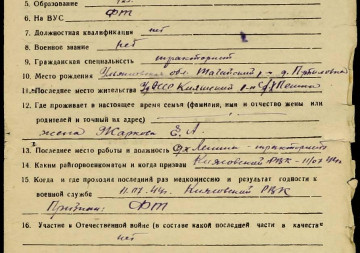 5. Образование
6. На ВУС ФТ
7. Должностная квалификация нет
8. Военное звание нет
9. Гражданская специальность тракторист
10. Место рождения обл.
11. Последнее место жительства УАССР р-н
12. Где проживает в настоящее время семья (фамилия, имя и отчество жены или
родителей и точный их адрес)
жена Жаркова Е. А.
13. Последнее место работы и должность Ленина - тракторист
14. Каким райгорвоенкоматом и когда призван РВК - 11/07 44 г.
15. Когда и где проходил последний раз медкомиссию и результат годности к
военной службе 11.07.44 г. РВК
Признан: ФТ
16. Участие в Отечественной войне (в составе какой последней части и качестве
нет